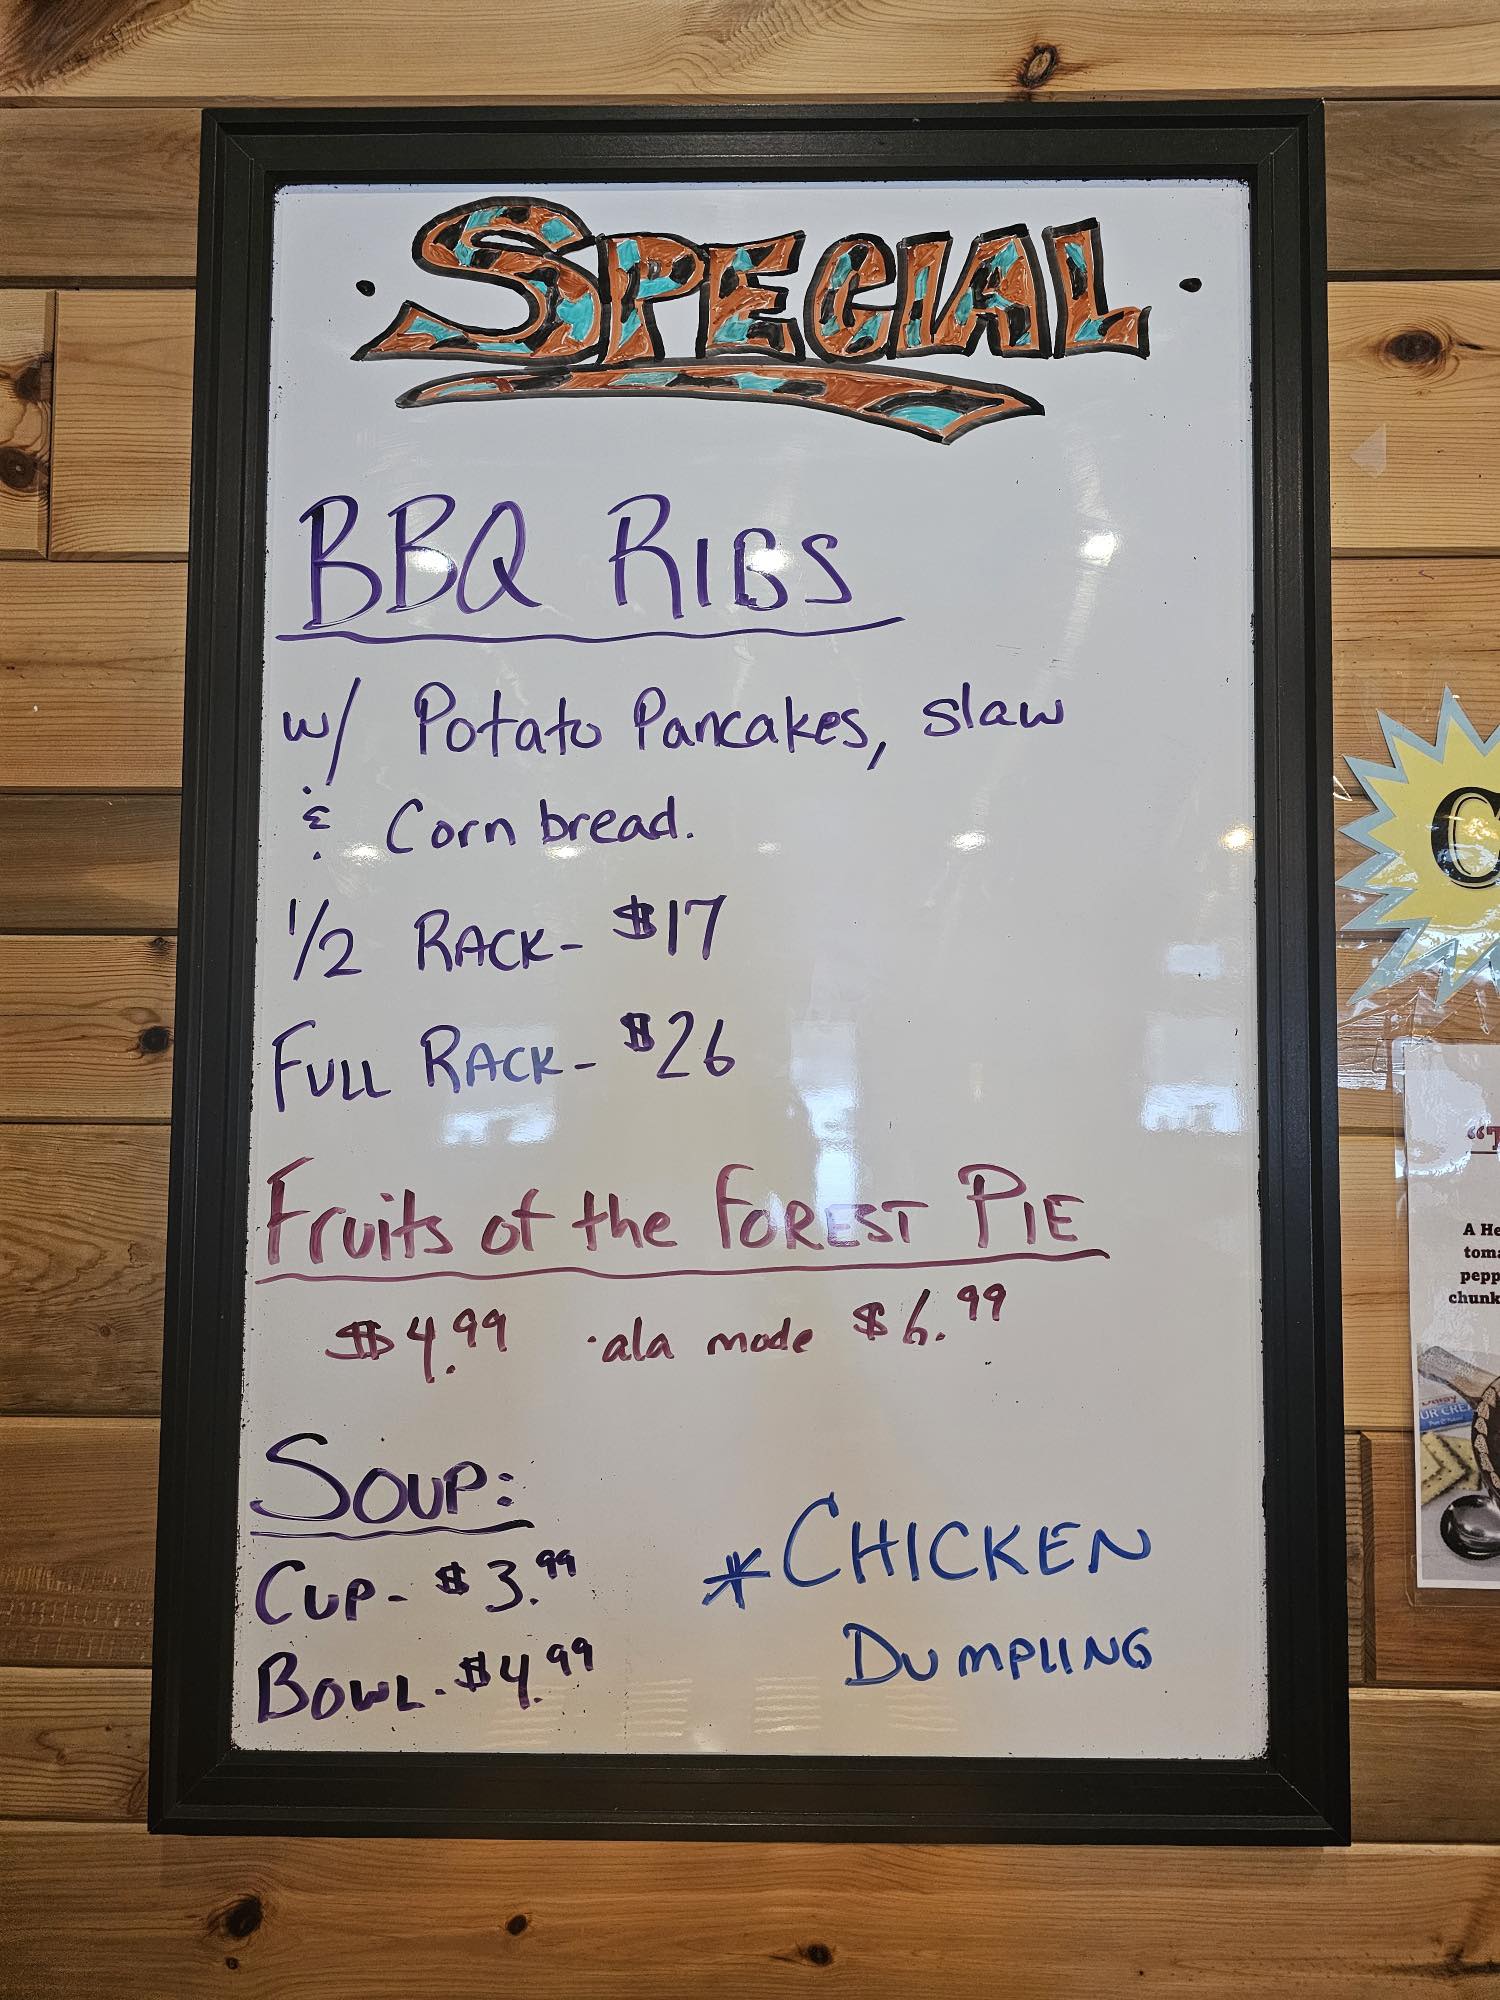 · SPECIAL ·
BBQ RIBS
w/ Potato Pancakes, slaw
& Corn bread.
1/2 RACK- $17
FULL RACK- $26
Fruits of the FOREST PIE
$4.99 ·ala mode $6.99
SOUP:
CUP- $3.99
BOWL- $4.99
*CHICKEN
DUMPLING
"T
A He
toma
pepp
chunk